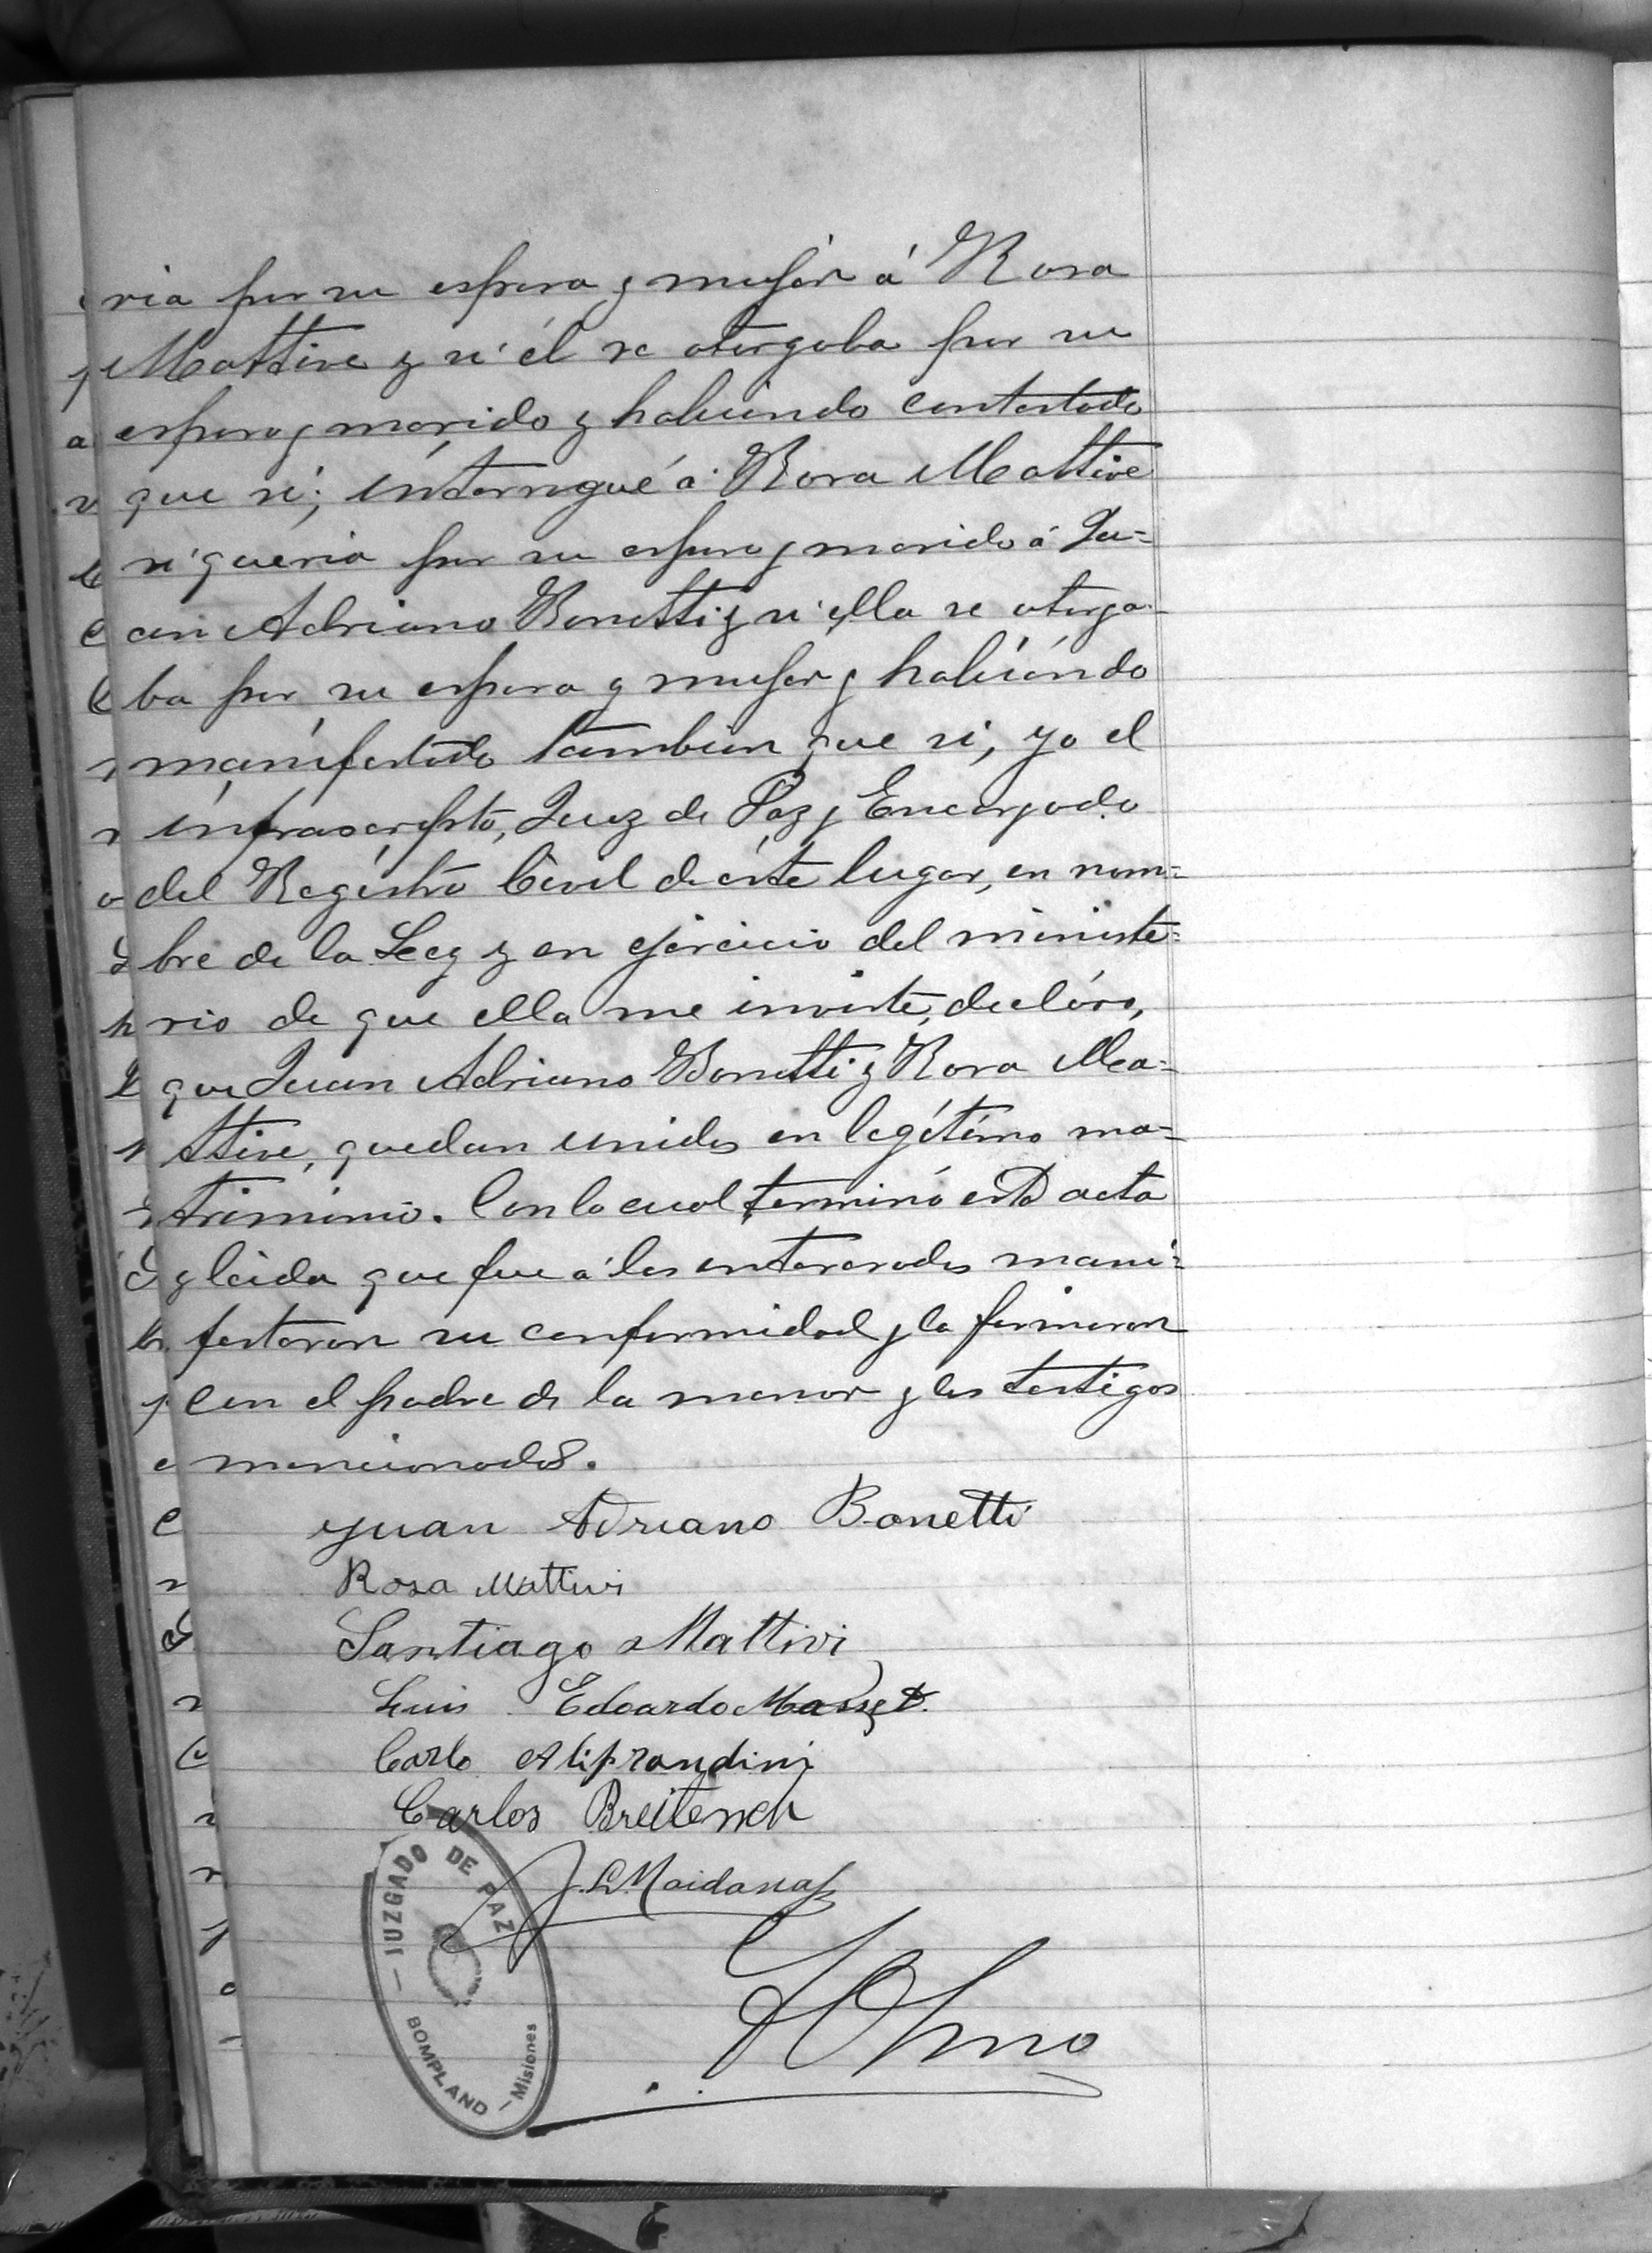 ria por su esposa y mujer á Rosa
Mattive y si él se otorgaba por su
esposo y marido y habiendo contestado
que si; interrogué á Rosa Mattive
si queria por su esposo y marido á Ju=
an Adriano Bonetti y si ella se otorga-
ba por su esposa y mujer y habiendo
manifestado tambien que si, yo el
infrascripto, Juez de Paz y Encargado
del Registro Civil de éste lugar, en nom=
bre de la Ley y en ejercicio del ministe=
rio de que ella me inviste, decláro,
que Juan Adriano Bonetti y Rosa Ma=
ttive, quedan unidos en legítimo ma=
trimonio. Con lo cual terminó esta acta
y leida que fue á los enterados mani=
festaron su conformidad y la firmaron
con el padre de la menor y los testigos
mencionados.
Juan Adriano Bonetti
Rosa Mattivi
Santiago Mattivi
Luis Edoardo Masset
Carlo Aliprandini
Carlos
J. L. Maidana
JUZGADO DE PAZ
BOMPLAND — Misiones